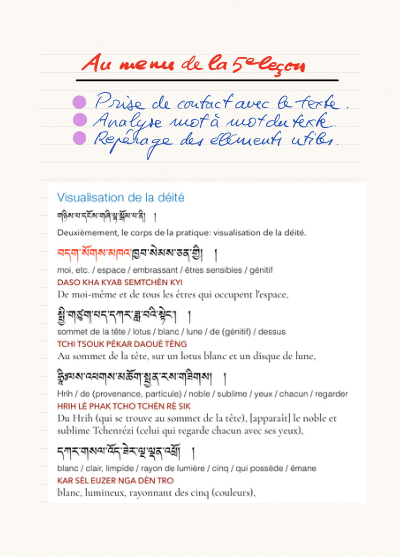 Au menu de la 5e leçon
Prise de contact avec le texte.
Analyse mot à mot du texte
Repérage des éléments utiles.
Visualisation de la déité
གཉིས་པ་དངོས་གཞི་ལྷ་སྒོམ་པ་ནི། །
Deuxièmement, le corps de la pratique: visualisation de la déité.
བདག་སོགས་མཁའ་ཁྱབ་སེམས་ཅན་གྱི། །
moi, etc. / espace / embrassant / êtres sensibles / génitif
DASO KHA KYAB SEMTCHÈN KYI
De moi-même et de tous les êtres qui occupent l'espace,
སྤྱི་གཙུག་པད་དཀར་ཟླ་བའི་སྟེང་། །
sommet de la tête / lotus / blanc / lune / de (génitif) / dessus
TCHI TSOUK PÈKAR DAOUÈ TÈNG
Au sommet de la tête, sur un lotus blanc et un disque de lune,
ཧྲཱིཿལས་འཕགས་མཆོག་སྤྱན་རས་གཟིགས། །
Hrih / de (provenance, particule) / noble / sublime / yeux / chacun / regarder
HRIH LÈ PHAK TCHO TCHÈN RÈ SIK
Du Hrih (qui se trouve au sommet de la tête), [apparaît] le noble et
sublime Tchenrézi (celui qui regarde chacun avec ses yeux),
དཀར་གསལ་འོད་ཟེར་ལྔ་ལྡན་འཕྲོ། །
blanc / clair, limpide / rayon de lumière / cinq / qui possède / émane
KAR SÈL EUZER NGA DÈN TRO
blanc, lumineux, rayonnant des cinq (couleurs),